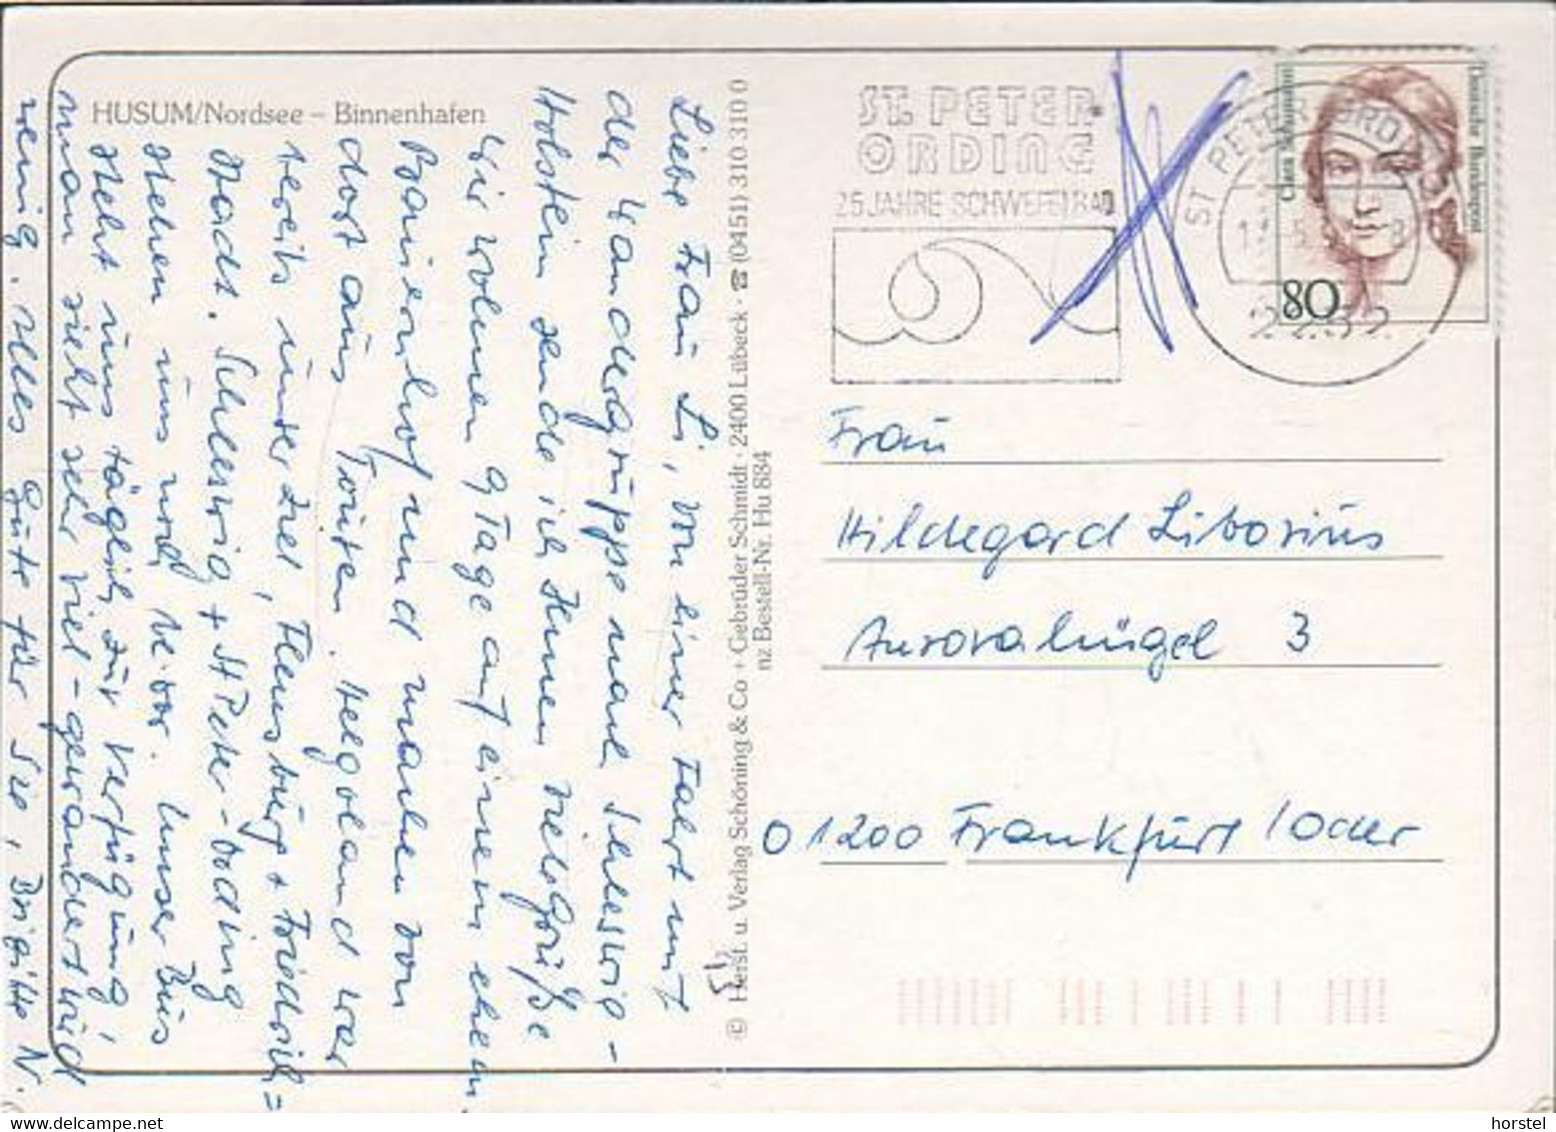 HUSUM/Nordsee – Binnenhafen
Liebe Frau Li, von einer Fahrt mit
der Wandergruppe nach Schleswig-
Holstein sende ich Ihnen viele Grüße
Wir wohnen 9 Tage auf einem ehem.
Bauernhof und machen von
dort aus Touren. Helgoland war
bereits unser Ziel, Flensburg + Friedrich=
stadt. Schleswig + St Peter-Ording
stehen uns noch bevor. Unser Bus
steht uns täglich zur Verfügung,
man sieht sehr viel - gewandert wird
wenig. Alles Gute für Sie, Brigitte N.
© Herst. u. Verlag Schöning & Co + Gebrüder Schmidt · 2400 Lübeck · ☎ (0451) 310 310 0
nz Bestell-Nr. Hu 884
ST. PETER
ORDING
25 JAHRE SCHWEFELBAD
ST PETER-ORDING
2252
Clara Schumann
Deutsche Bundespost
80
Frau
Hildegard Liborius
Aurorahügel 3
O 1200 Frankfurt / Oder
horstel